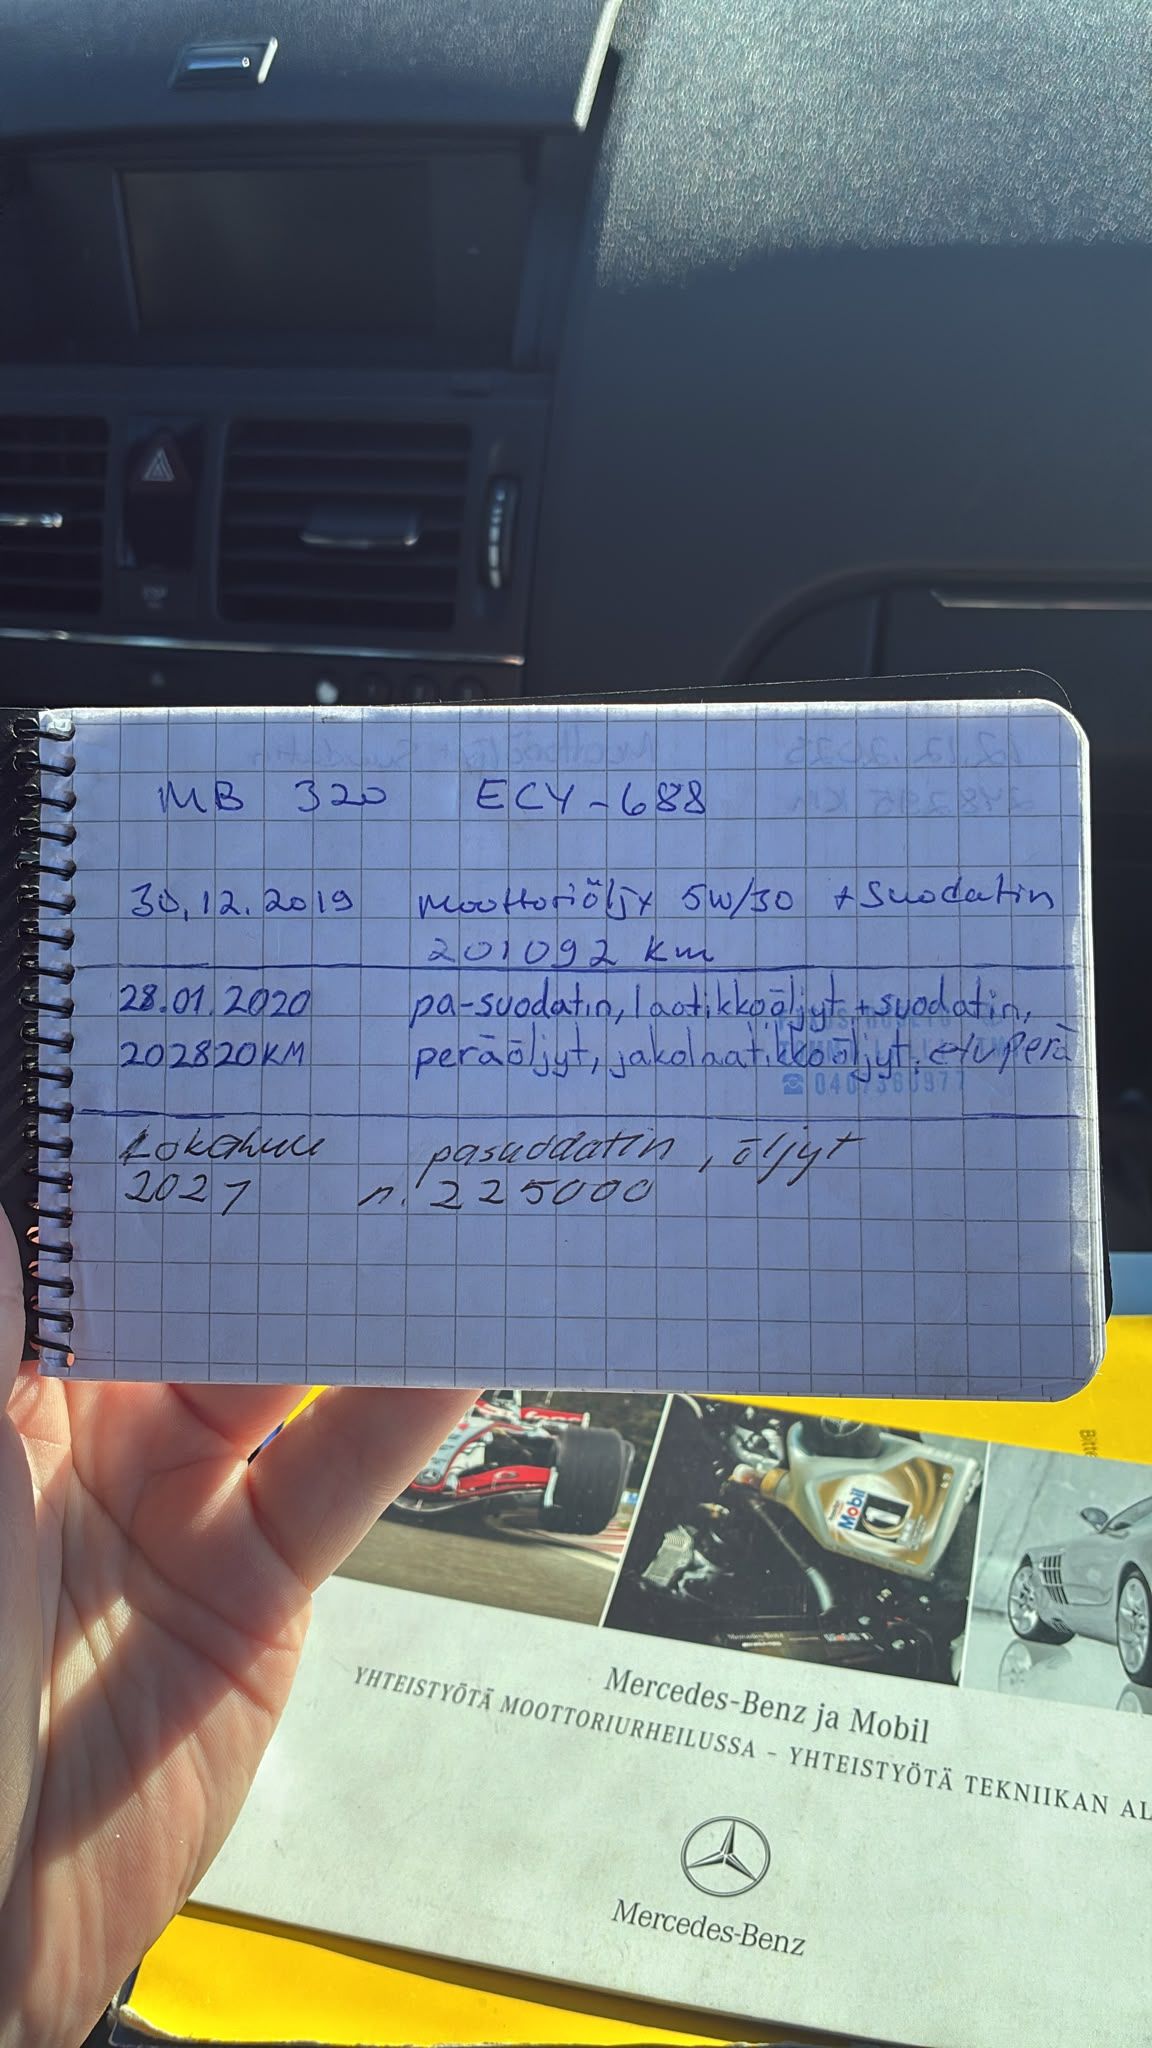 MB 320 ECY-688
30.12.2019 Moottoriöljy 5W/30 + Suodatin
201092 km
28.01.2020 pa-suodatin, laatikkoöljyt + suodatin,
202820KM peräöljyt, jakolaatikkoöljyt. etuperä
☎ 0407360977
Lokakuu pasuodatin, öljyt
2021 n. 225000
Mobil
1
Mercedes-Benz ja Mobil
YHTEISTYÖTÄ MOOTTORIURHEILUSSA – YHTEISTYÖTÄ TEKNIIKAN AL
Mercedes-Benz
Bitte